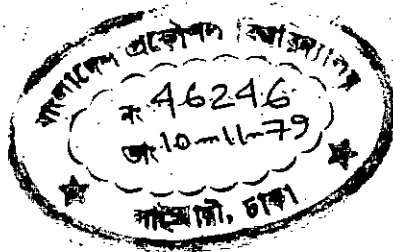 বাংলাদেশ প্রকৌশল বিশ্ববিদ্যালয়
নং 46246
তাং 10-11-79
লাইব্রেরী, ঢাকা